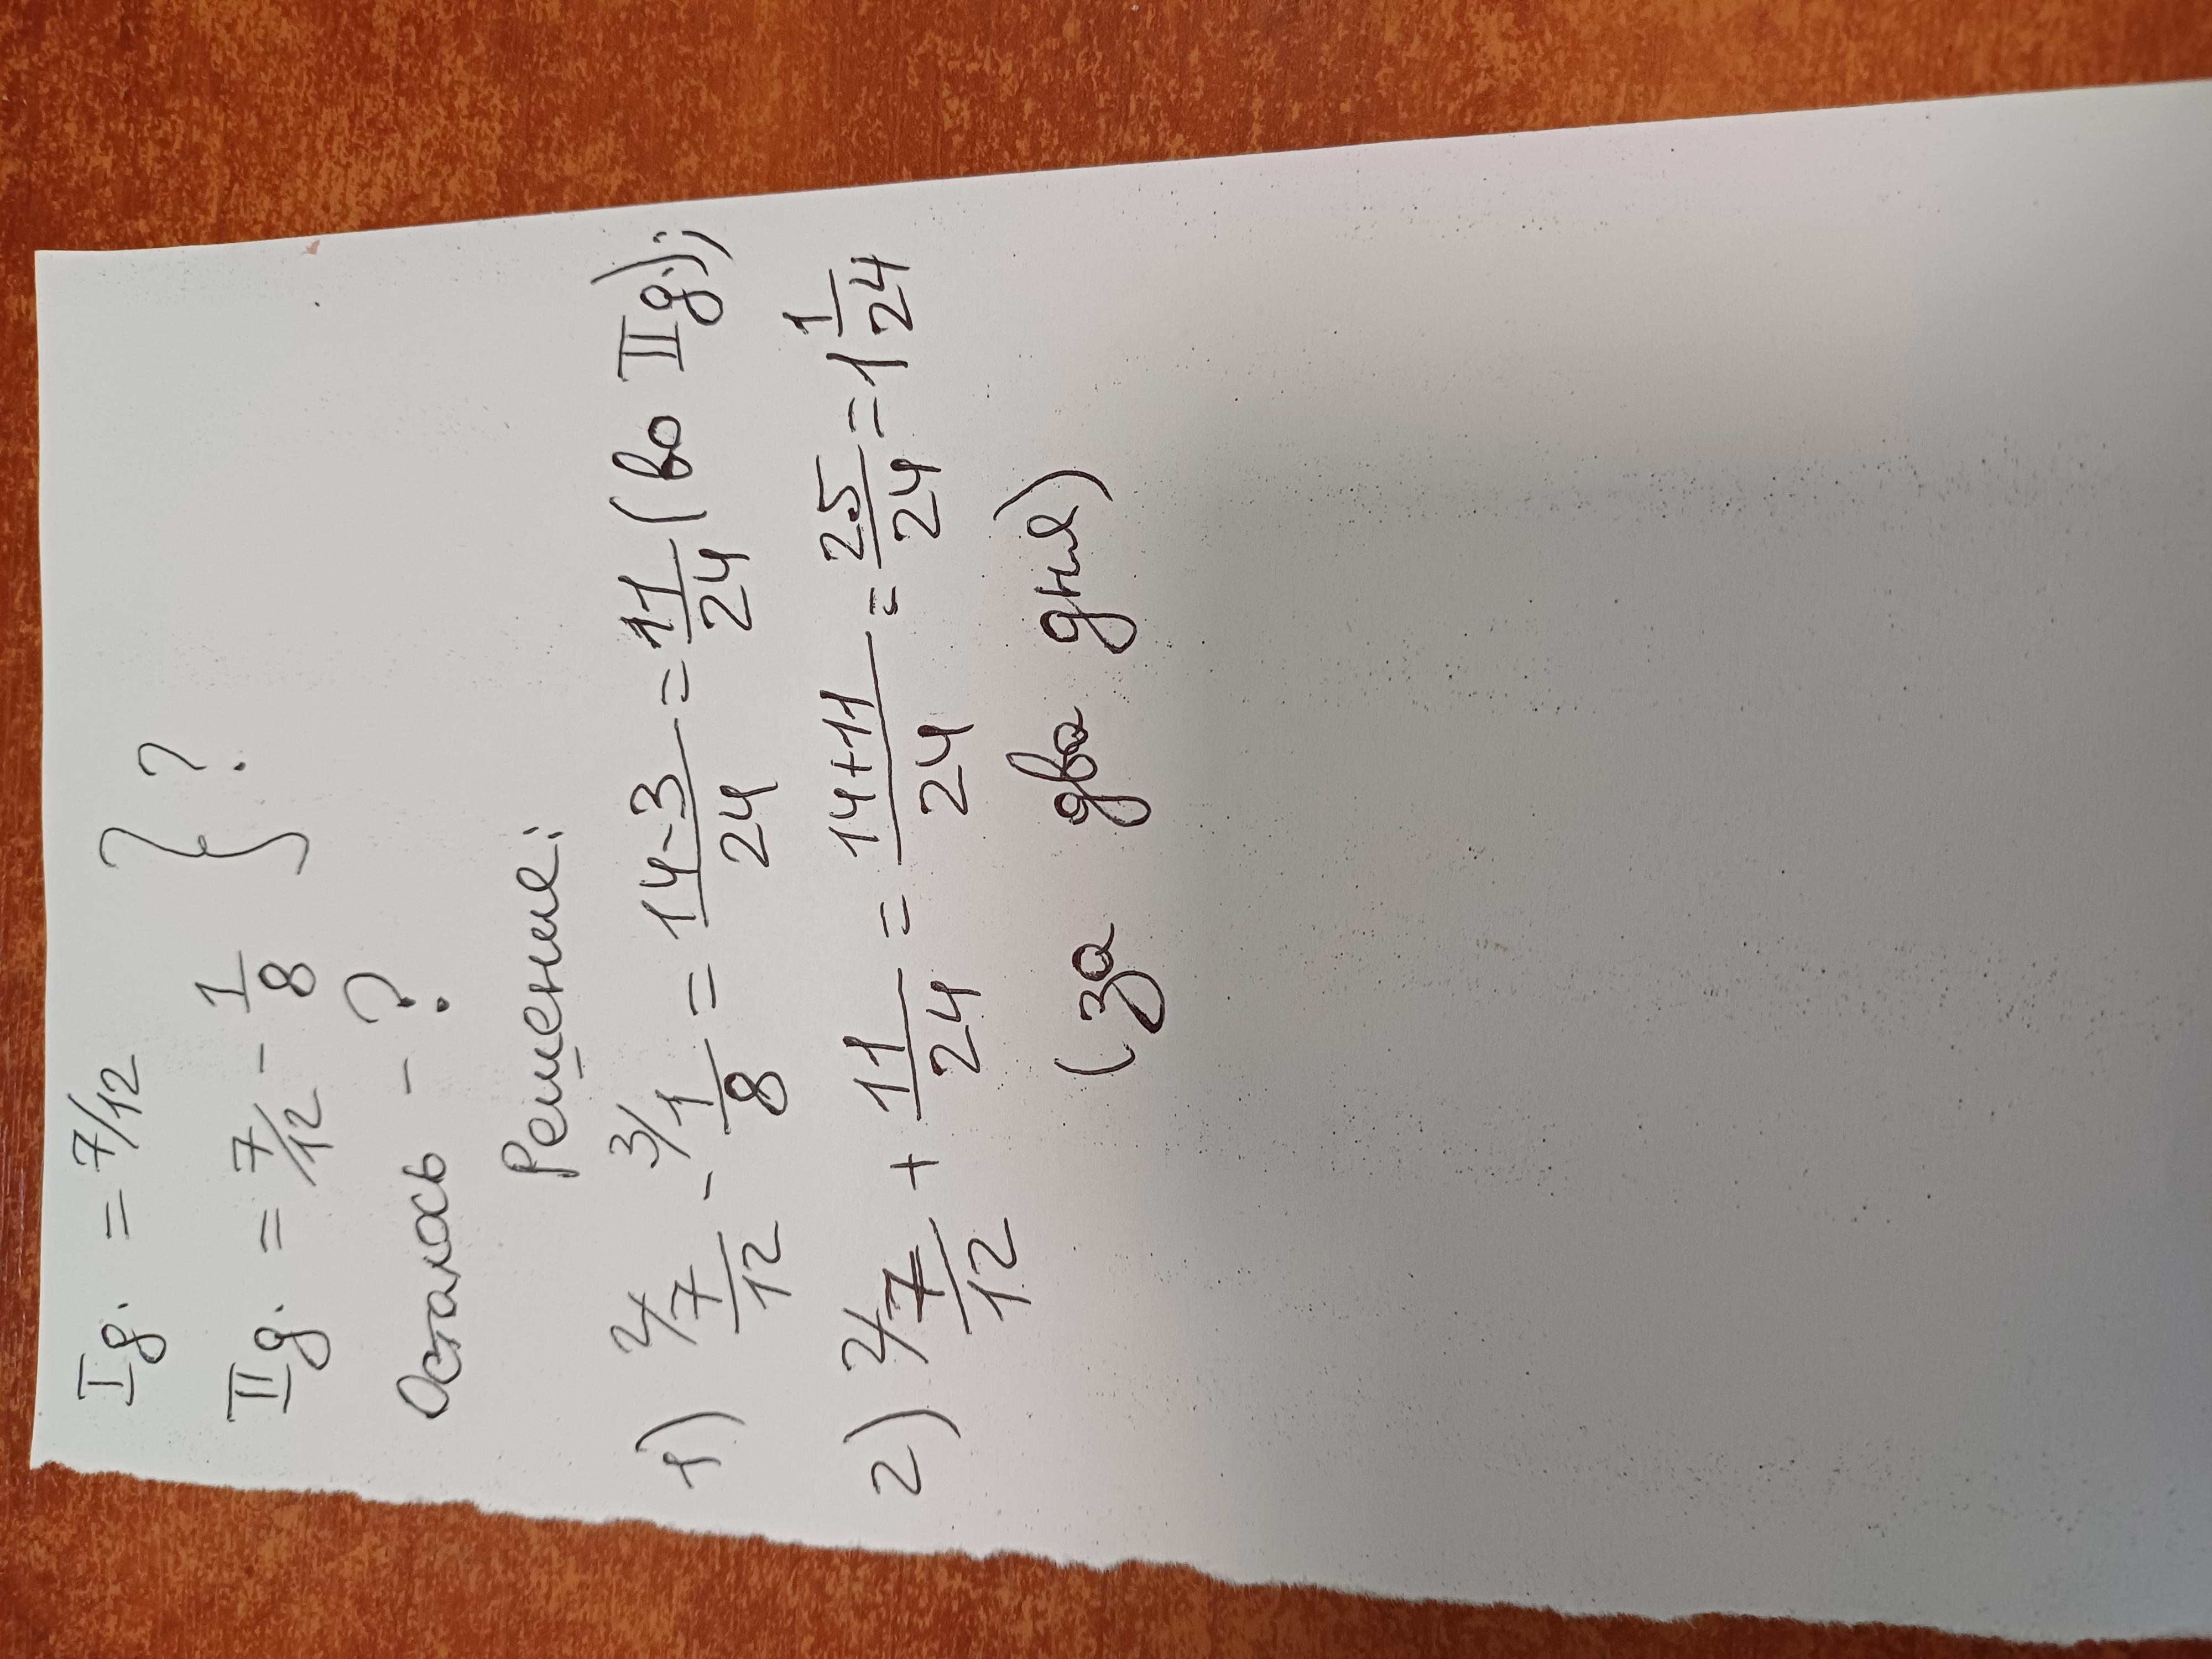 I д. = 7/12 } ?
II д. = 7/12 - 1/8
Осталось - ?
Решение:
1) 2/ 7/12 - 3/ 1/8 = 14-3/24 = 11/24 (во II д.);
2) 2/ 7/12 + 11/24 = 14+11/24 = 25/24 = 1 1/24
(за два дня)